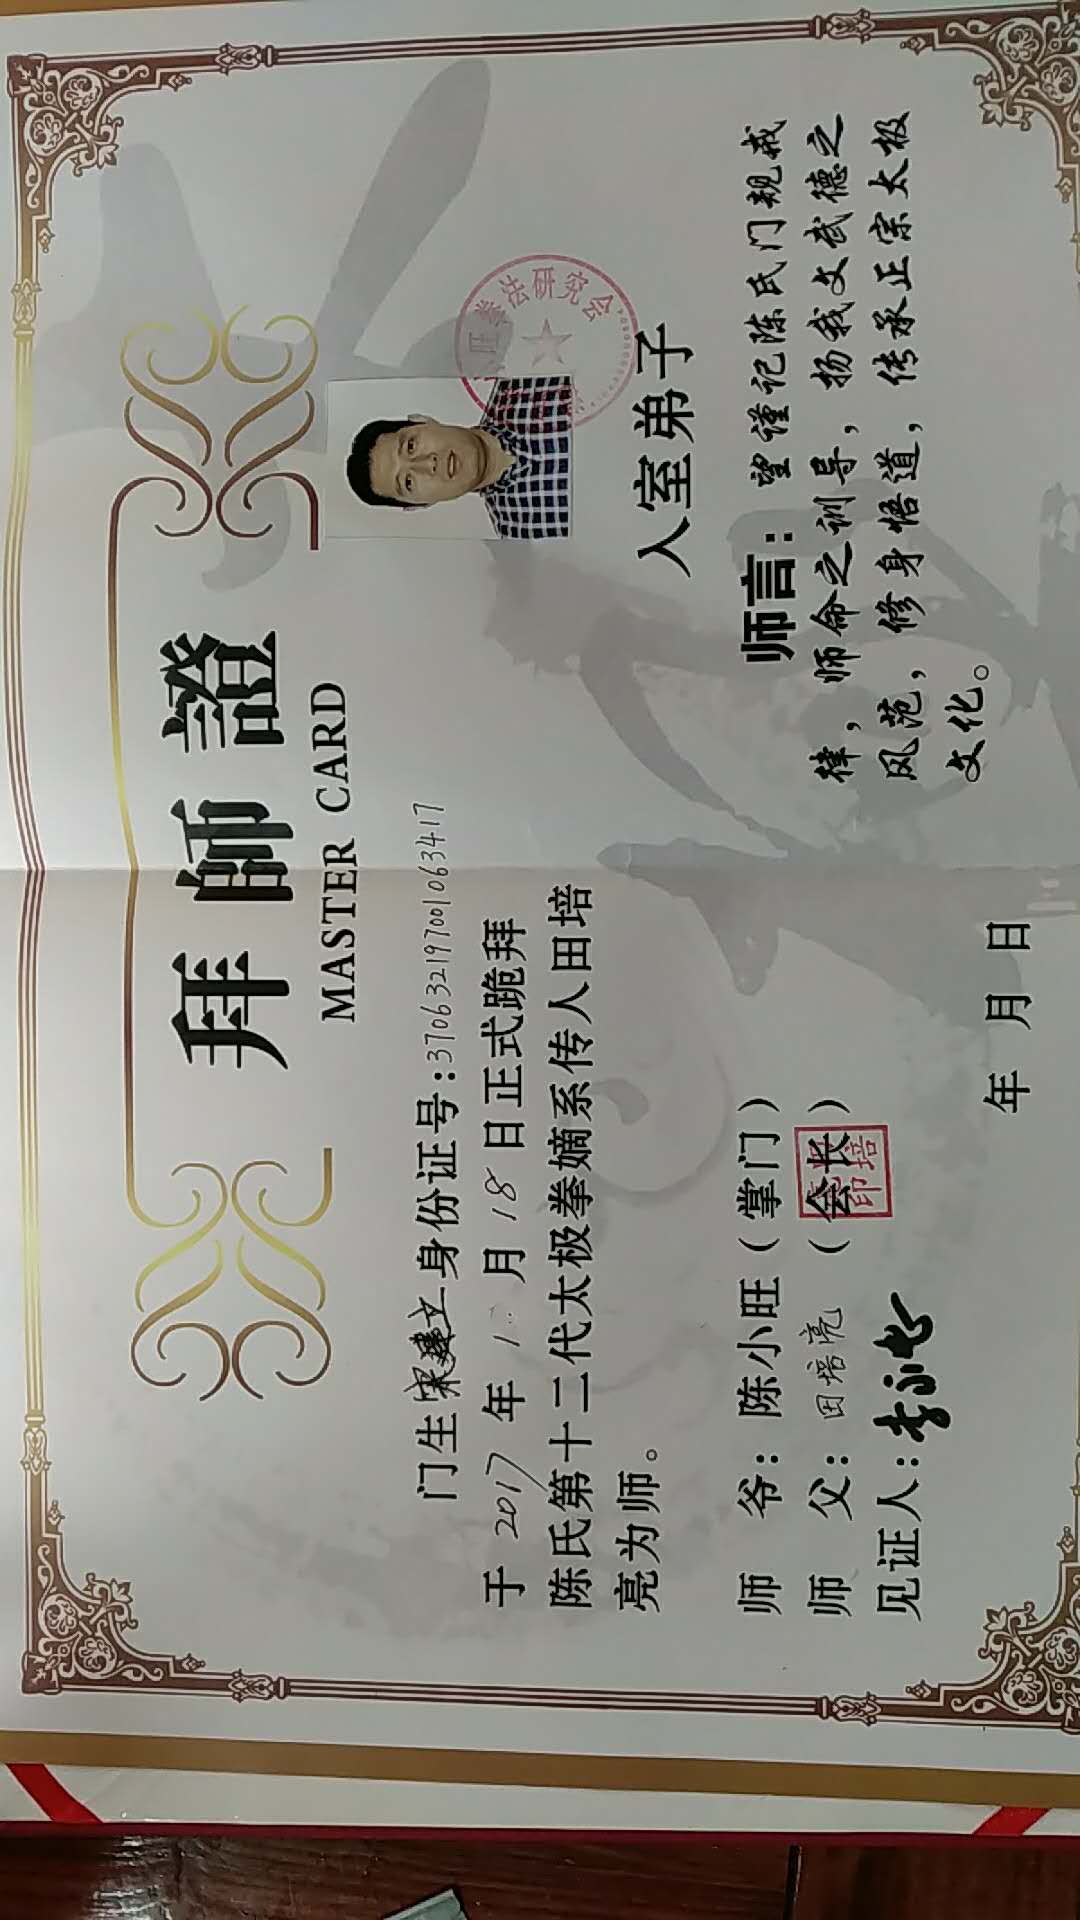 拜師證
MASTER CARD
门生宋建立身份证号:370632197001063417
于 2017 年 1 月 18 日正式跪拜
陈氏第十二代太极拳嫡系传人田培
亮为师。
师 爷：陈小旺（掌门）
师 父：田培亮（会长）
见证人：
年 月 日
旺拳法研究会
入室弟子
师言：望谨记陈氏门规戒
律，师命之训导，扬我文武德之
风范，修身悟道，传承正宗太极
文化。